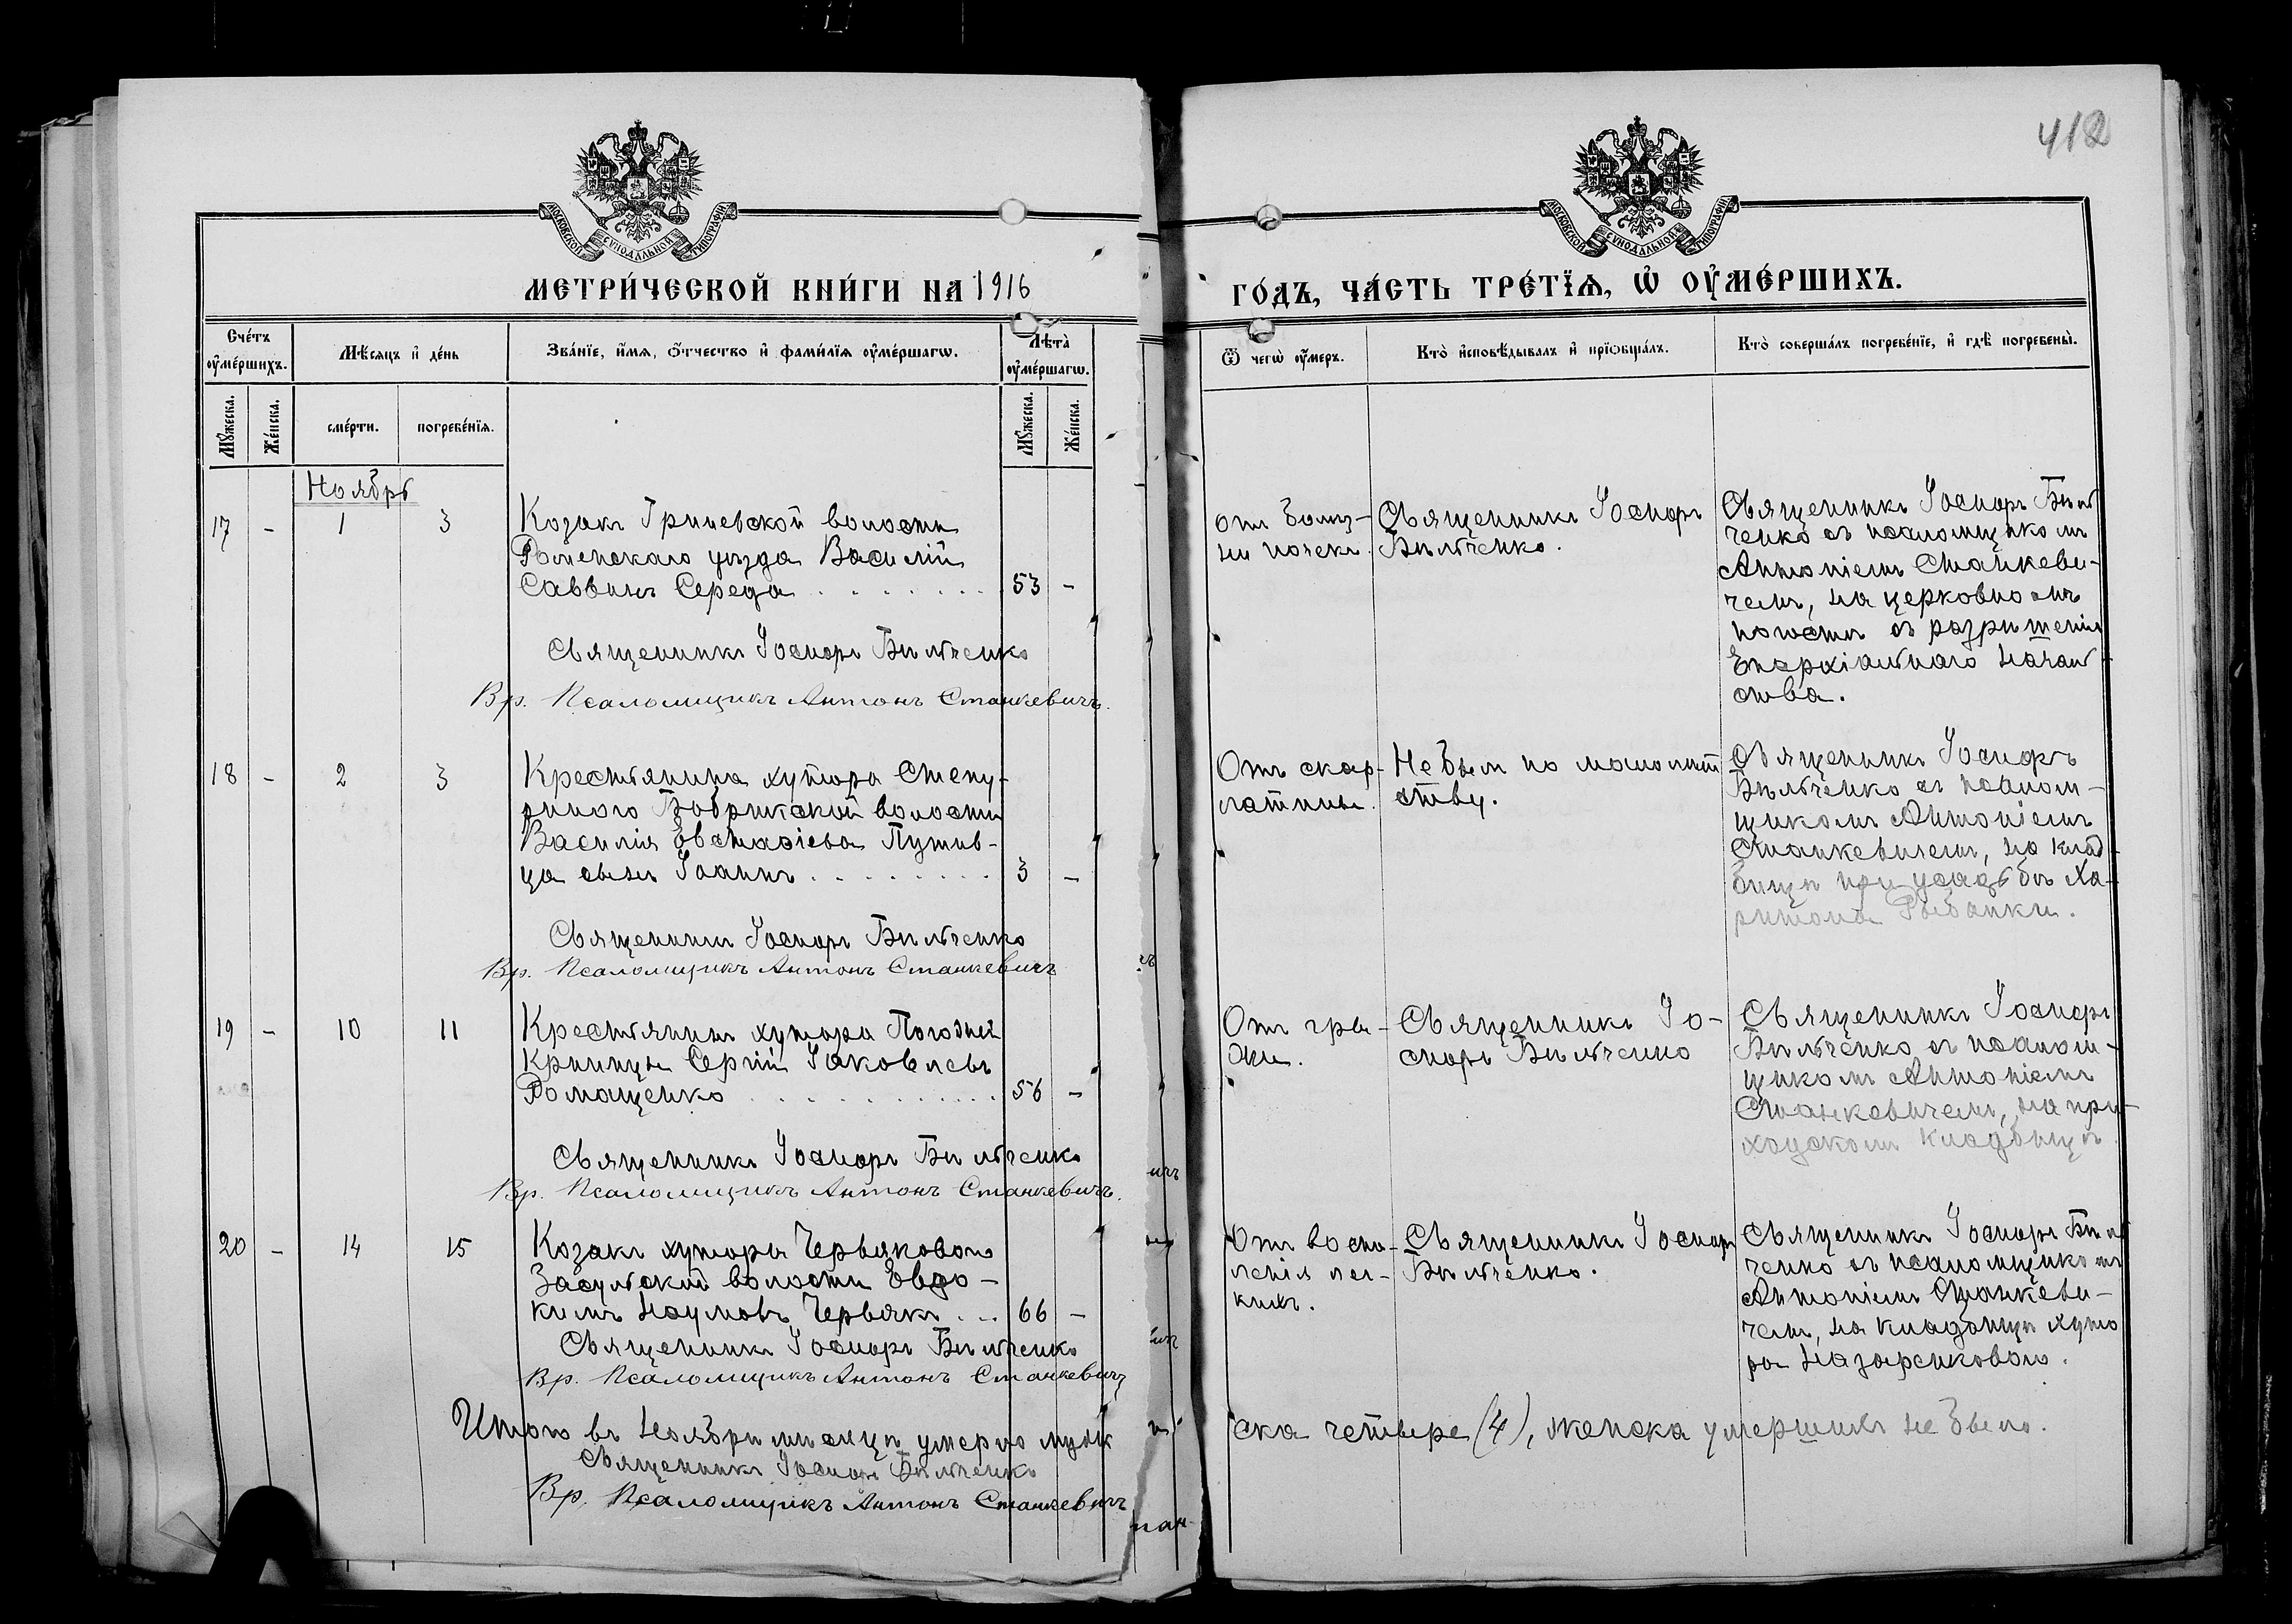 412
МОСКОВСКОЙ СѴНОДАЛЬНОЙ ТИПОГРАФІИ
МОСКОВСКОЙ СѴНОДАЛЬНОЙ ТИПОГРАФІИ
МЕТРИ́ЧЕСКОЙ КНИ́ГИ НА 1916
ГО́ДЪ, ЧА́СТЬ ТРЕ́ТЇѦ, Ѡ҆ ОУ҆МЕ́РШИХЪ.
Сче́тъ оу҆ме́ршихъ.
Мѣ́сяцъ и҆ де́нь
Зва́нїе, и҆́мя, ѻ҆́тчество и҆ фами́лїя оу҆ме́ршагѡ.
Лѣта̀ оу҆ме́ршагѡ.
Ѿ чегѡ̀ оу҆́меръ.
Кто̀ и҆сповѣ́дывалъ и҆ прїѡбща́лъ.
Кто̀ соверша́лъ погребе́нїе, и҆ гдѣ̀ погребены̀.
Мꙋ́жеска.
Же́нска.
сме́рти.
погребе́нїя.
Мꙋ́жеска.
Же́нска.
Ноябрь
17 - 1 3
Козакъ Гриневской волости
Роменскаго уѣзда Василій
Саввинъ Середа 53 -
Священникъ Іосифъ Бѣльченко
Вр. Псаломщикъ Антонъ Станкевичъ.
отъ болѣз-
ни почекъ.
Священникъ Іосифъ
Бѣльченко.
Священникъ Іосифъ Бѣль
ченко съ псаломщикомъ
Антоніемъ Станкеви-
чемъ, на церковномъ
погостѣ съ разрѣшенія
Епархіальнаго началь-
ства.
18 - 2 3
Крестьянина хутора Степу-
ринаго Бобрикской волости
Василія Евстафіева Путив-
ца сынъ Іоаннъ 3 -
Священникъ Іосифъ Бѣльченко
Вр. Псаломщикъ Антонъ Станкевичъ
Отъ скар-
латины.
Не былъ по малолѣт
ству.
Священникъ Іосифъ
Бѣльченко съ псалом-
щикомъ Антоніемъ
Станкевичемъ, на клад-
бищѣ при усадьбѣ Ха-
ритона Рыбалки.
19 - 10 11
Крестьянинъ хутора Погозней
Криницы Сергій Іаковлевъ
Ромащенко 56 -
Священникъ Іосифъ Бѣльченко
Вр. Псаломщикъ Антонъ Станкевичъ.
Отъ гры-
жи.
Священникъ Іо-
сифъ Бѣльченко
Священникъ Іосифъ
Бѣльченко съ псалом-
щикомъ Антоніемъ
Станкевичемъ, на при-
ходскомъ кладбищѣ
20 - 14 15
Козакъ хутора Червяковаго
Засульской волости Евдо-
кимъ Наумовъ Червякъ 66 -
Священникъ Іосифъ Бѣльченко
Вр. Псаломщикъ Антонъ Станкевичъ
Отъ воспа-
ленія лег-
кихъ.
Священникъ Іосифъ
Бѣльченко.
Священникъ Іосифъ Бѣль
ченко съ псаломщикомъ
Антоніемъ Станкеви-
чемъ, на кладбищѣ хуто
ра Назаренковаго.
Итого въ Ноябрѣ мѣсяцѣ умерло муж
ска четыре (4), женска умершихъ не было.
Священникъ Іосифъ Бѣльченко
Вр. Псаломщикъ Антонъ Станкевичъ